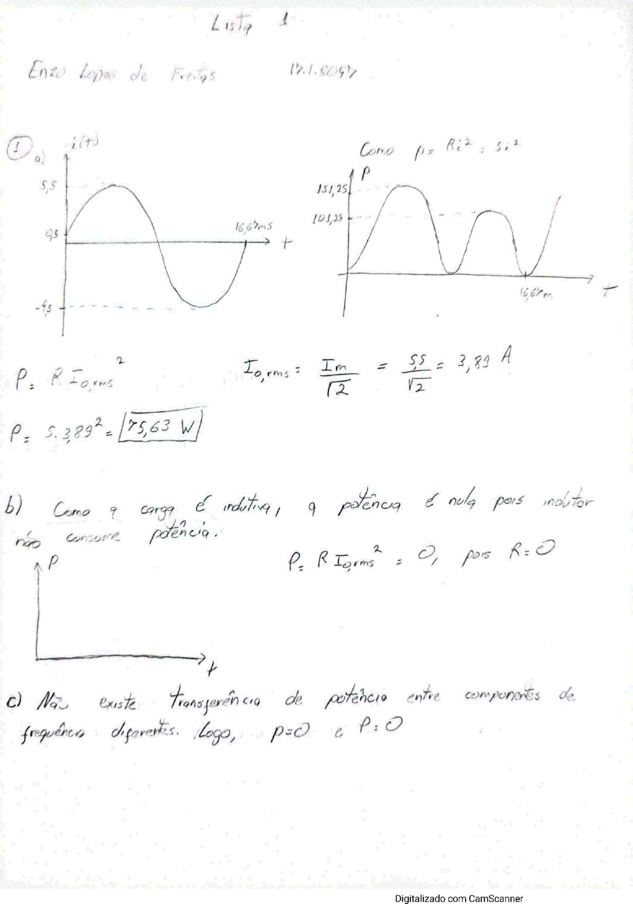 Lista 1
Enzo Lopes de Freitas 17.1.8057
1 a) i(t)
5,5
0,5
-4,5
16,67ms
t
Como p = Ri² = 5i²
P
151,25
101,25
16,67m
t
P = R Io,rms² Io,rms = Im/√2 = 5,5/√2 = 3,89 A
P = 5.3,89² = 75,63 W
b) Como a carga é indutiva, a potência é nula pois indutor
não consome potência.
P = R Io,rms² = 0, pois R = 0
P
t
c) Não existe transferência de potência entre componentes de
frequência diferentes. Logo, p=0 e P=0
Digitalizado com CamScanner